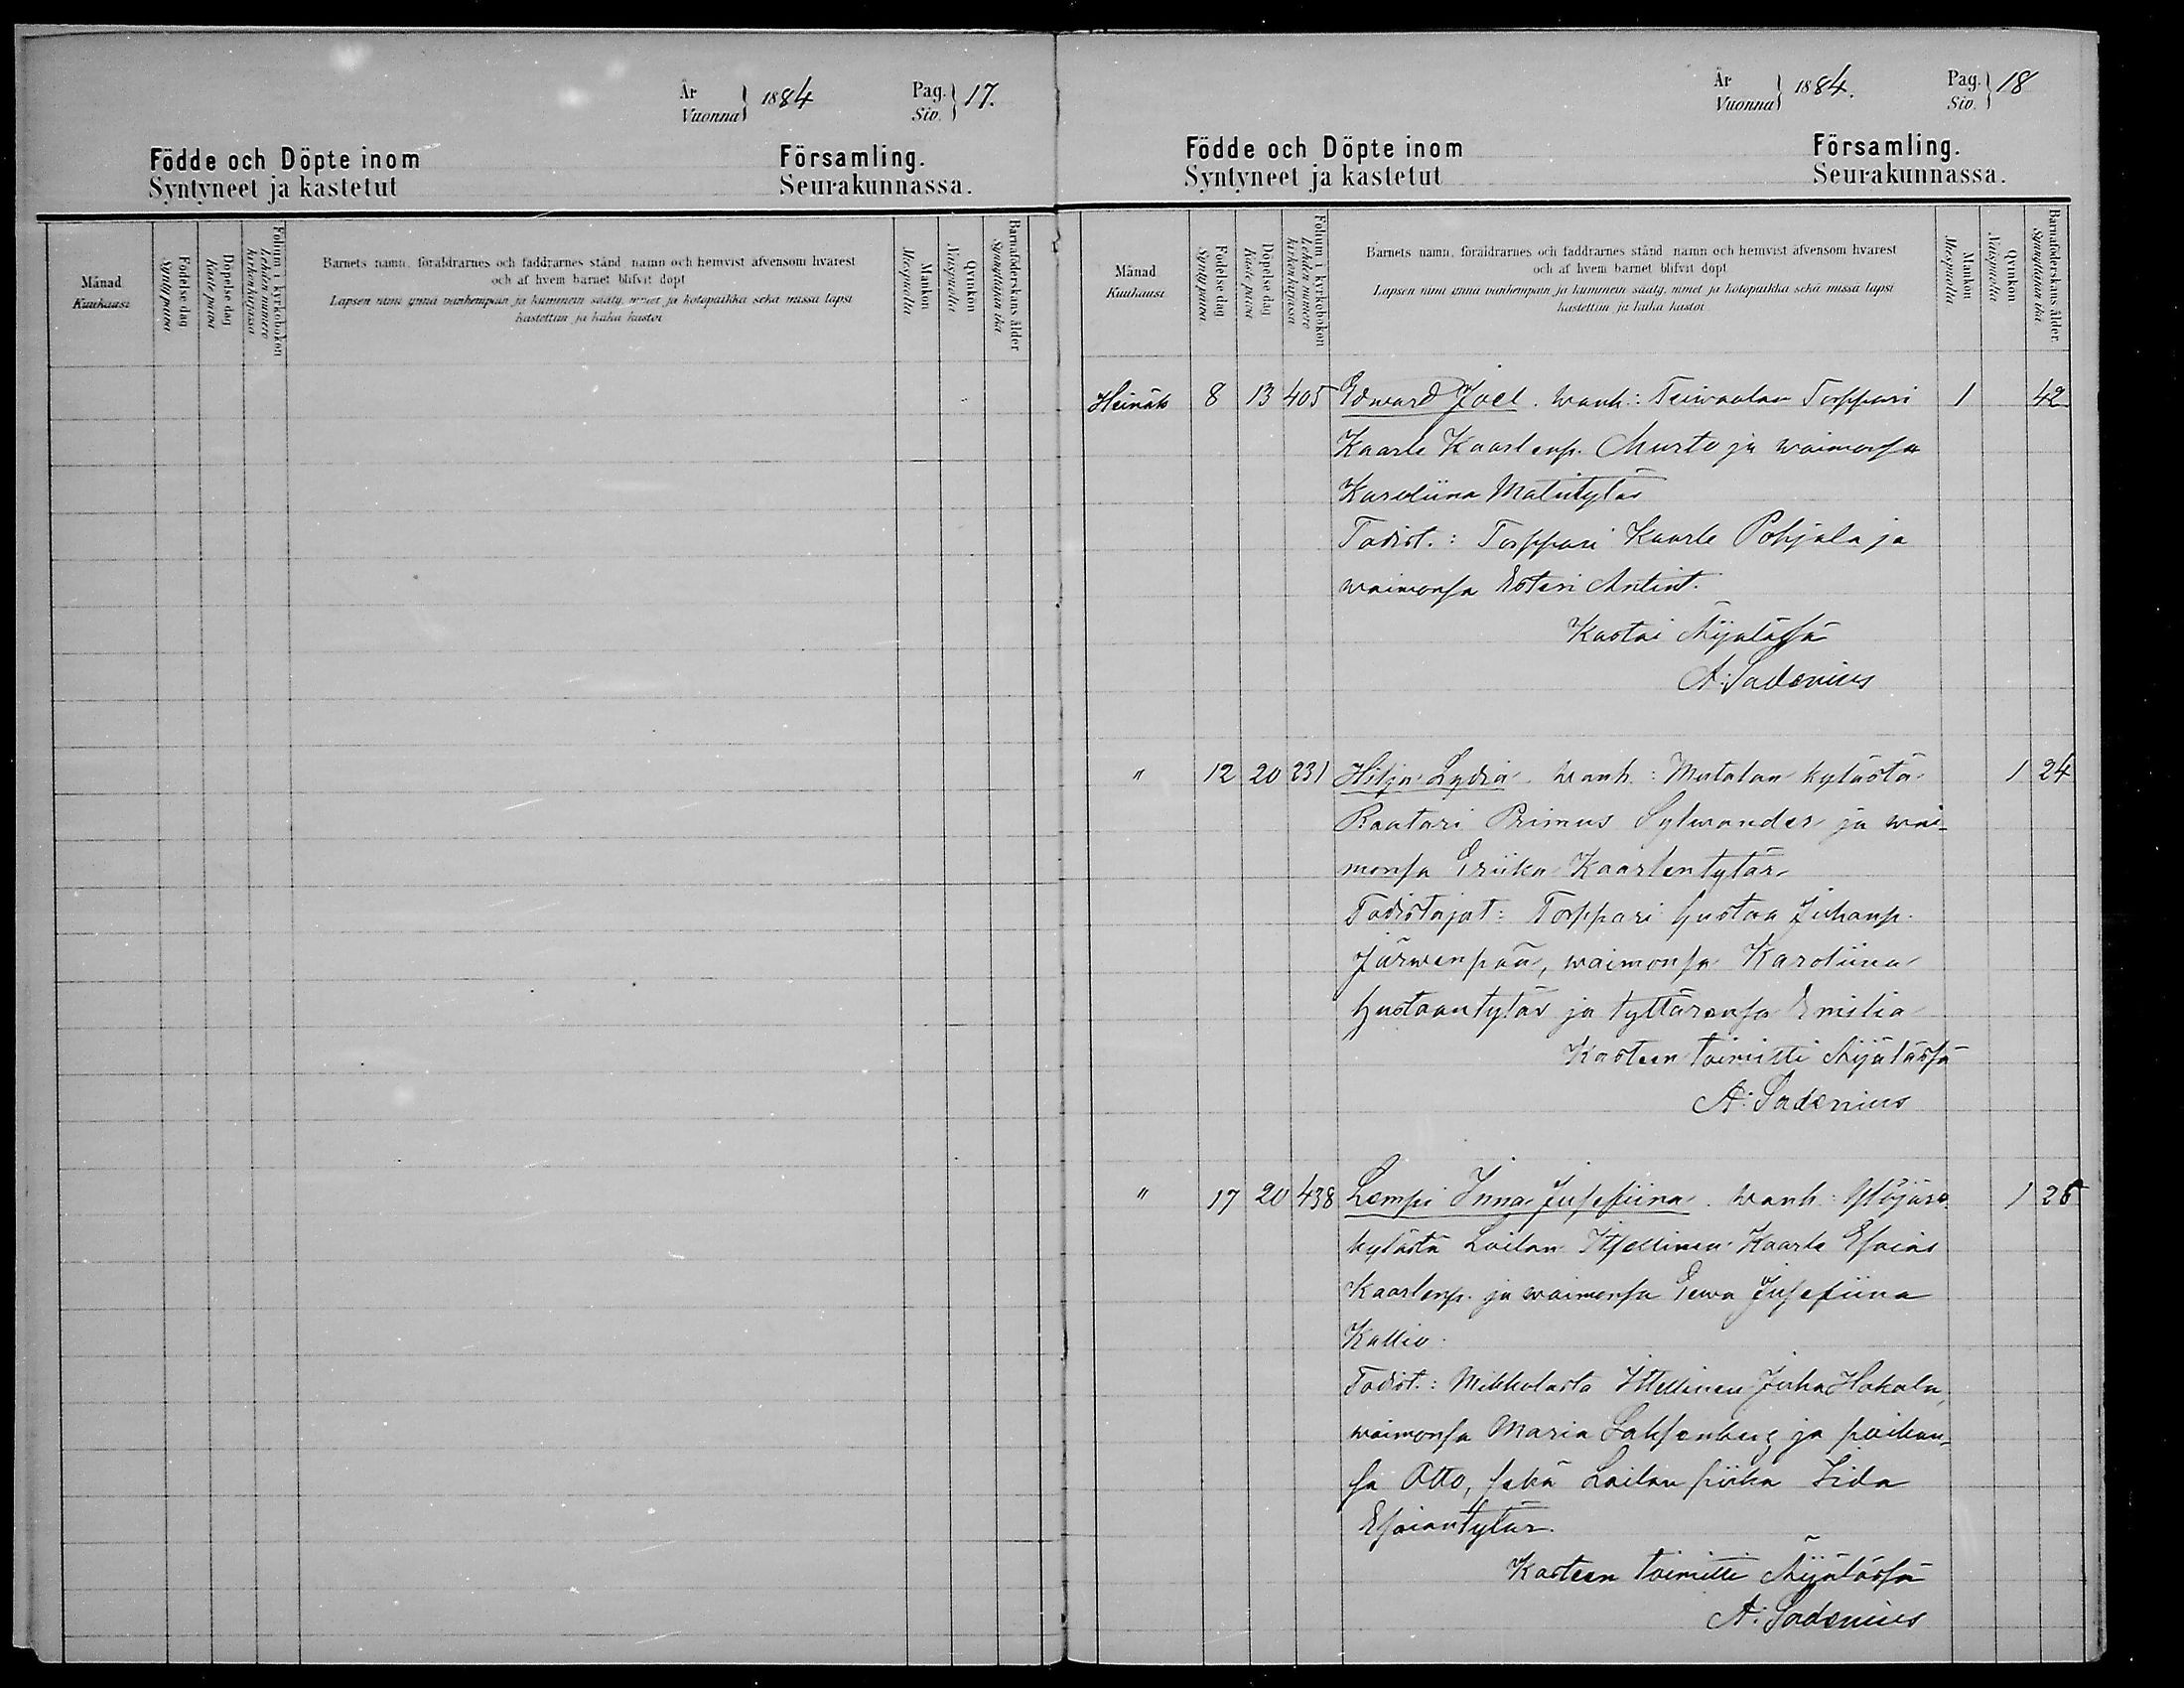 År
Vuonna } 1884
Pag.
Siv. } 17.
Födde och Döpte inom Församling.
Syntyneet ja kastetut Seurakunnassa.
Månad
Kuukausi
Födelsedag
Synty päivä
Döpelsedag
Kaste päivä
Folium i kyrkoboken
Lehden numero kirkonkirjassa
Barnets namn, föräldrarnes och faddrarnes stånd, namn och hemvist äfvensom hvarest
och af hvem barnet blifvit döpt
Lapsen nimi ynnä vanhempain ja kummein sääty, nimet ja kotopaikka sekä missä lapsi
kastettiin ja kuka kastoi
Mankön
Miespuolta
Qvinkön
Naispuolta
Barnaföderskans ålder
Synnyttäjän ikä
År
Vuonna } 1884.
Pag.
Siv. } 18
Födde och Döpte inom Församling.
Syntyneet ja kastetut Seurakunnassa.
Månad
Kuukausi
Födelsedag
Synty päivä
Döpelsedag
Kaste päivä
Folium i kyrkoboken
Lehden numero kirkonkirjassa
Barnets namn, föräldrarnes och faddrarnes stånd, namn och hemvist äfvensom hvarest
och af hvem barnet blifvit döpt
Lapsen nimi ynnä vanhempain ja kummein sääty, nimet ja kotopaikka sekä missä lapsi
kastettiin ja kuka kastoi
Mankön
Miespuolta
Qvinkön
Naispuolta
Barnaföderskans ålder.
Synnyttäjän ikä
Heinäk 8 13 405 Edward Joel. Wanh.: Teiwaalan Torppari 1 42
Kaarle Kaarlenp. Murto ja waimonsa
Karoliina Matintytär
Todist.: Torppari Kaarle Pohjala ja
waimonsa Esteri Antint.
Kastoi Äijälässä
A: Sadenius
" 12 20 231 Hilja Lydia. Wanh.: Mutalan kylästä 1 24
Raatari Primus Sylwander ja wai-
monsa Eriika Kaarlentytär
Todistajat: Torppari Gustaa Juhanp.
Järwenpää, waimonsa Karoliina
Gustaantytär ja tyttärensä Emilia
Kasteen toimitti Äijälässä
A: Sadenius
" 17 20 438 Lempi Inna Jusefiina. Wanh: Ylöjärw. 1 26
kylästä Lailan Itsellinen Kaarle Esaias
Kaarlenp. ja waimonsa Eewa Jusefiina
Kallio.
Todist.: Mikkolasta Itsellinen Juha Hakala,
waimonsa Maria Saksenberg ja poikan-
sa Otto, sekä Lailan piika Iida
Esaiantytär.
Kasteen toimitti Äijälässä
A: Sadenius